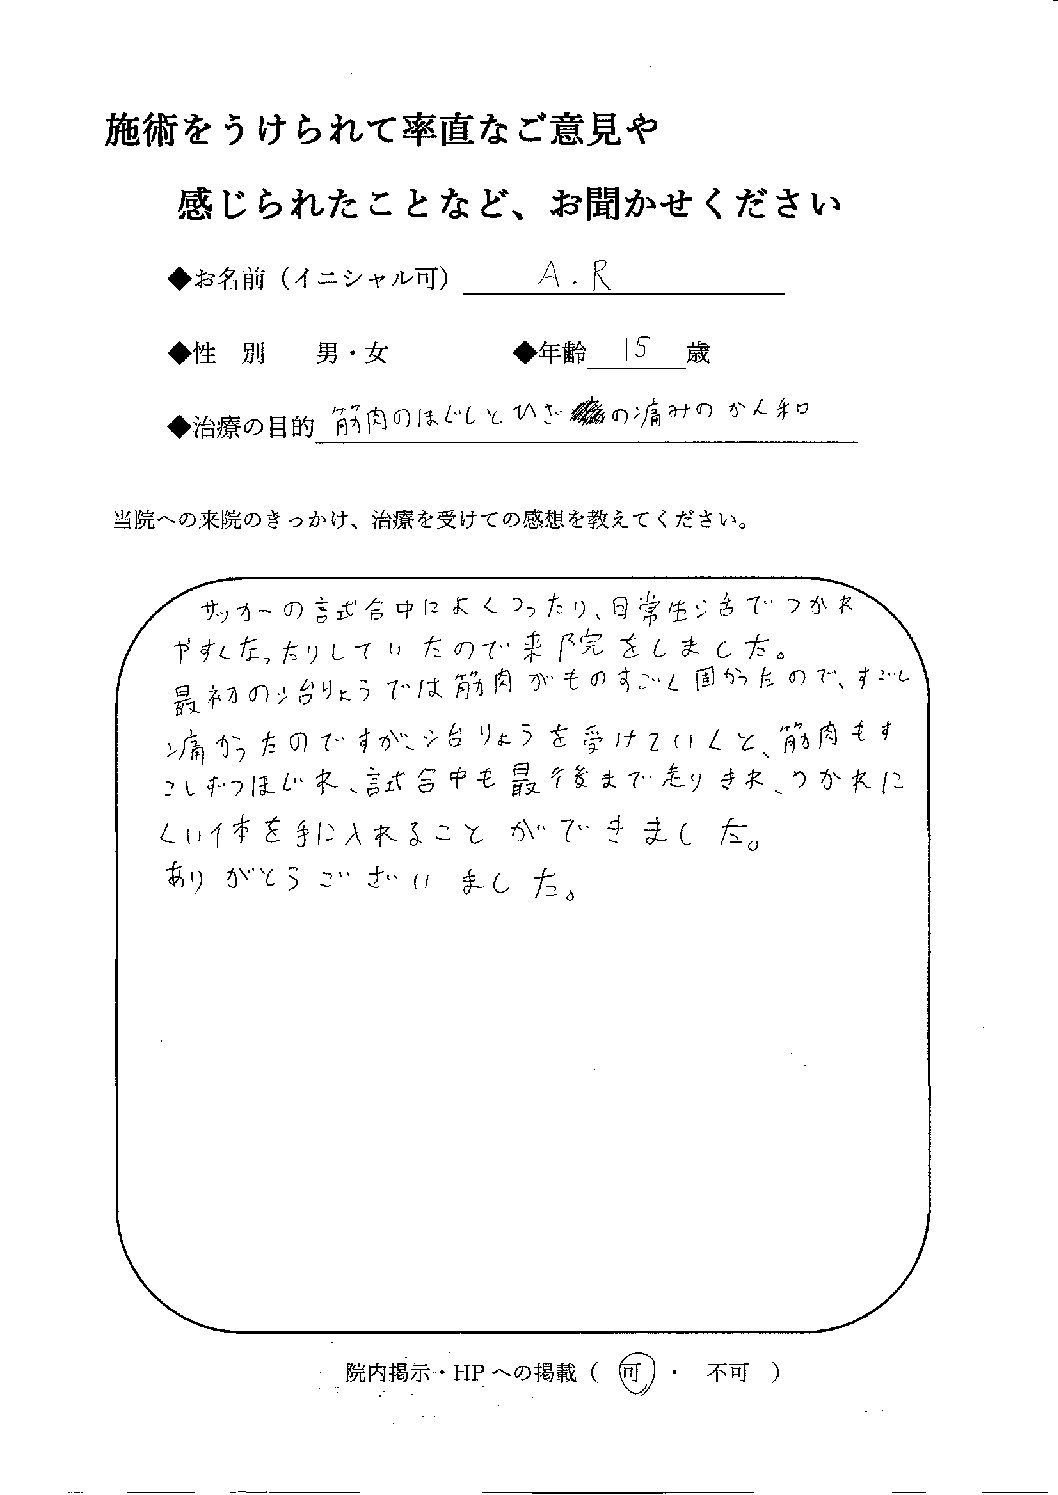 施術をうけられて率直なご意見や
感じられたことなど、お聞かせください
◆お名前（イニシャル可） A.R
◆性　別　　男・女　　◆年齢 15 歳
◆治療の目的 筋肉のほぐしとひざの痛みのかん和
当院への来院のきっかけ、治療を受けての感想を教えてください。
サッカーの試合中によくつったり、日常生活でつかれ
やすくなったりしていたので来院をしました。
最初の治りょうでは筋肉がものすごく固かったので、すごし
痛かったのですが、治りょうを受けていくと、筋肉もす
こしずつほぐれ、試合中も最後まで走りきれ、つかれに
くい体を手に入れることができました。
ありがとうございました。
院内掲示・HPへの掲載（　可　・　不可　）